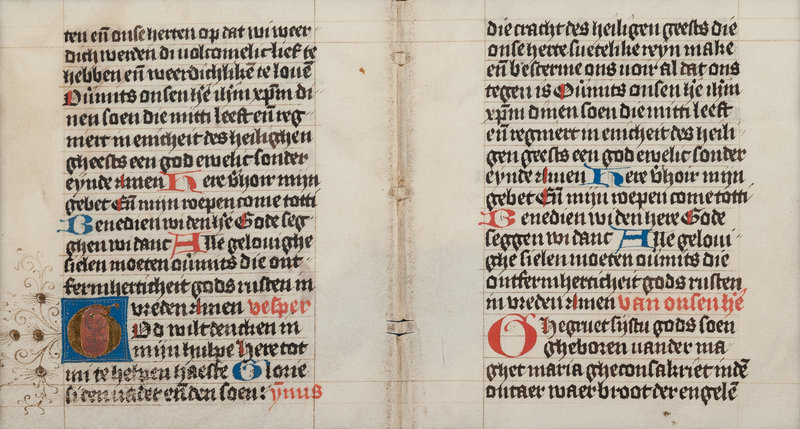 ten en̄ onse herten op dat wi weer
dich werden di volcomelic lief te
hebben en̄ weerdichlikē te louē
Ou̅mits onsen h̅e ih̅m xp̅m di
nen soen die mitti leeft en̄ reg
neert in enicheit des heilighen
gheests een god ewelic sonder
eynde Amen Here v̅hoir mijn
gebet En̄ mijn roepen come totti
Benedien wi den h̅e Gode seg
ghen wi danc Alle gelouighe
sielen moeten ou̅mits die ont
fermherticheit gods rusten in
vreden Amen vesper
God wilt dencken in
mijn hulpe Here tot
mi te helpen haeste Glorie
si den vader en̄ den soen: ȳnus
die cracht des heiligen geests die
onse herte suetelike reyn make
en̄ bescerme ons voir al dat ons
tegen is Ou̅mits onsen h̅e ih̅m
xp̅m dinen soen die mitti leeft
en̄ regneert in enicheit des heili
gen geests een god ewelic sonder
eynde Amen Here v̅hoir mijn
gebet En̄ mijn roepen come totti
Benedien wi den here Gode
seggen wi danc Alle geloui
ghe sielen moeten ou̅mits die
ontfermherticheit gods rusten
in vreden Amen van onsen h̅e
O Ghegruet sijstu gods soen
gheboren vander ma
ghet maria gheconsakriert indē
outaer waer broot der engelē